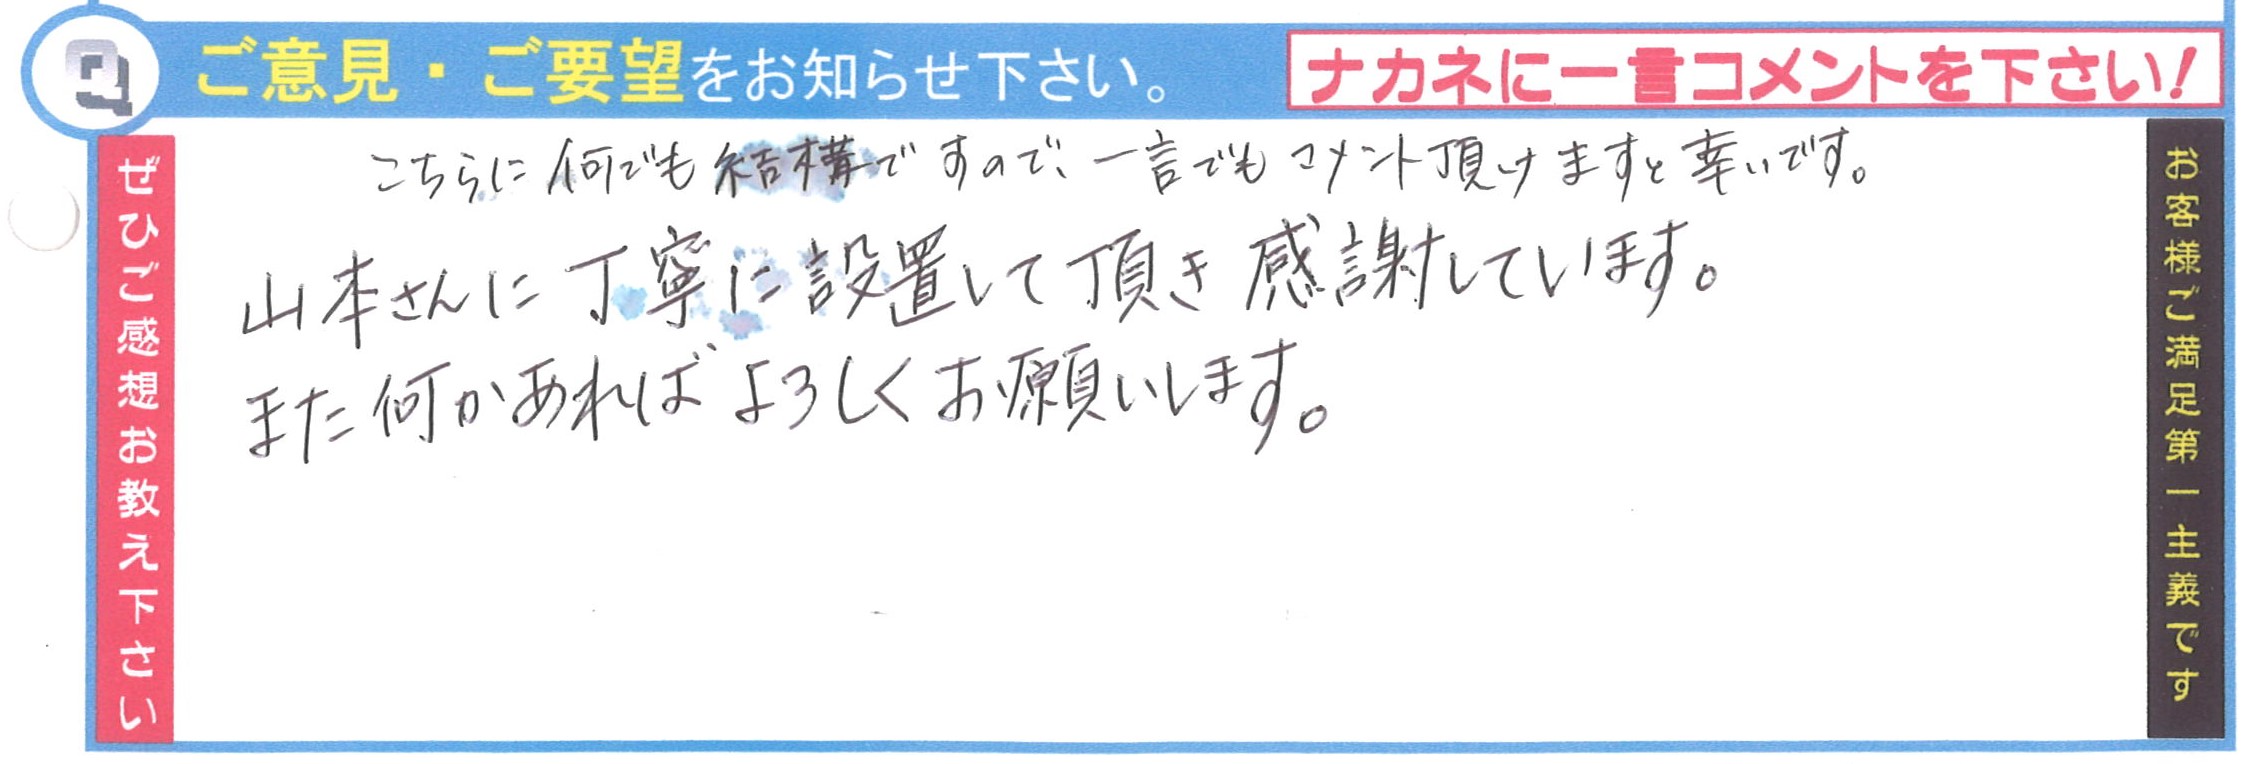 Q ご意見・ご要望をお知らせ下さい。
ナカネに一言コメントを下さい!
ぜひご感想お教え下さい
こちらに何でも結構ですので、一言でもコメント頂けますと幸いです。
山本さんに丁寧に設置して頂き感謝しています。
また何かあればよろしくお願いします。
お客様ご満足第一主義です